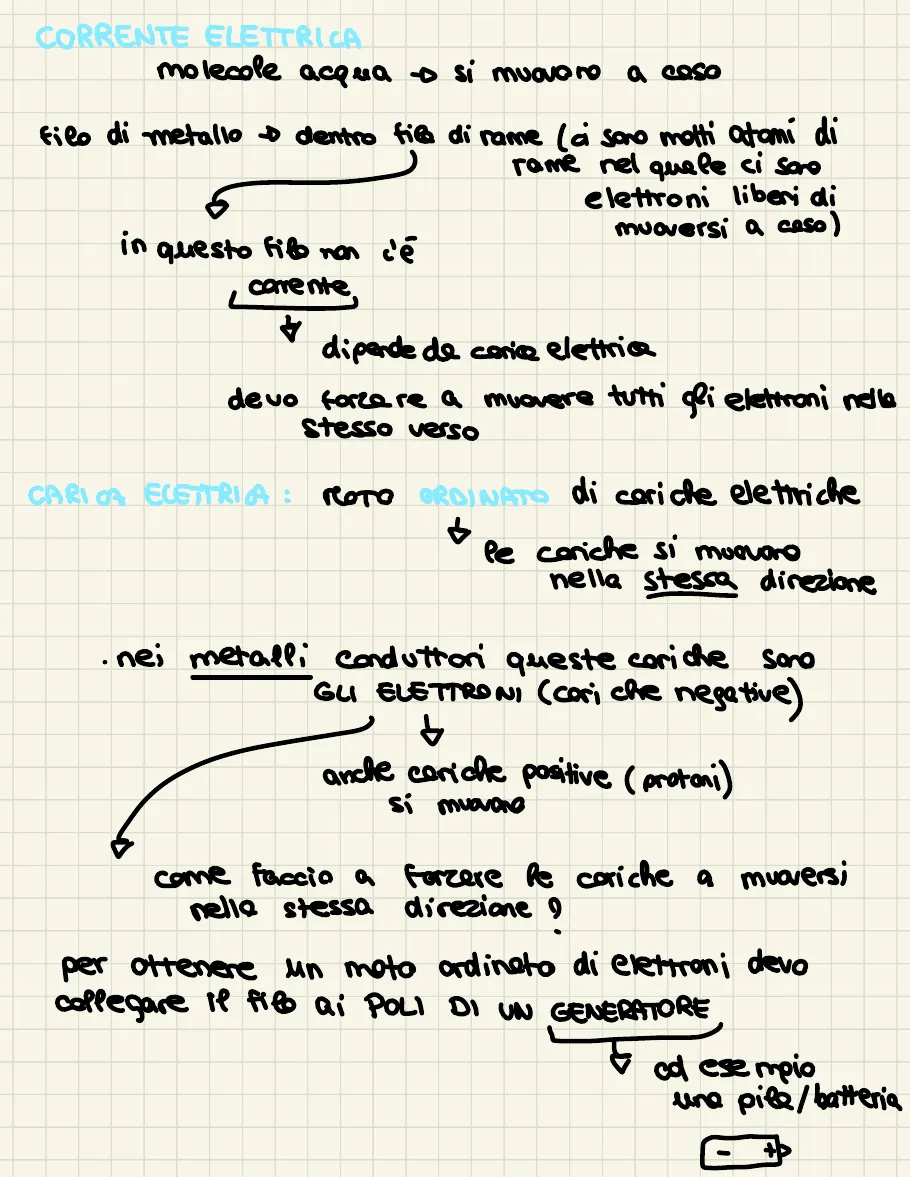 CORRENTE ELETTRICA
molecole acqua → si muovono a caso
filo di metallo → dentro filo di rame (ci sono molti atomi di
rame nel quale ci sono
elettroni liberi di
muoversi a caso)
in questo filo non c'è
corrente
dipende da carica elettrica
devo forzare a muovere tutti gli elettroni nello
stesso verso
CARICA ELETTRICA: MOTO ORDINATO di cariche elettriche
le cariche si muovono
nella stessa direzione
. nei metalli conduttori queste cariche sono
GLI ELETTRONI (cariche negative)
anche cariche positive (protoni)
si muovono
come faccio a forzare le cariche a muoversi
nella stessa direzione?
per ottenere un moto ordinato di elettroni devo
collegare il filo ai POLI DI UN GENERATORE
ad esempio
una pila/batteria
- +